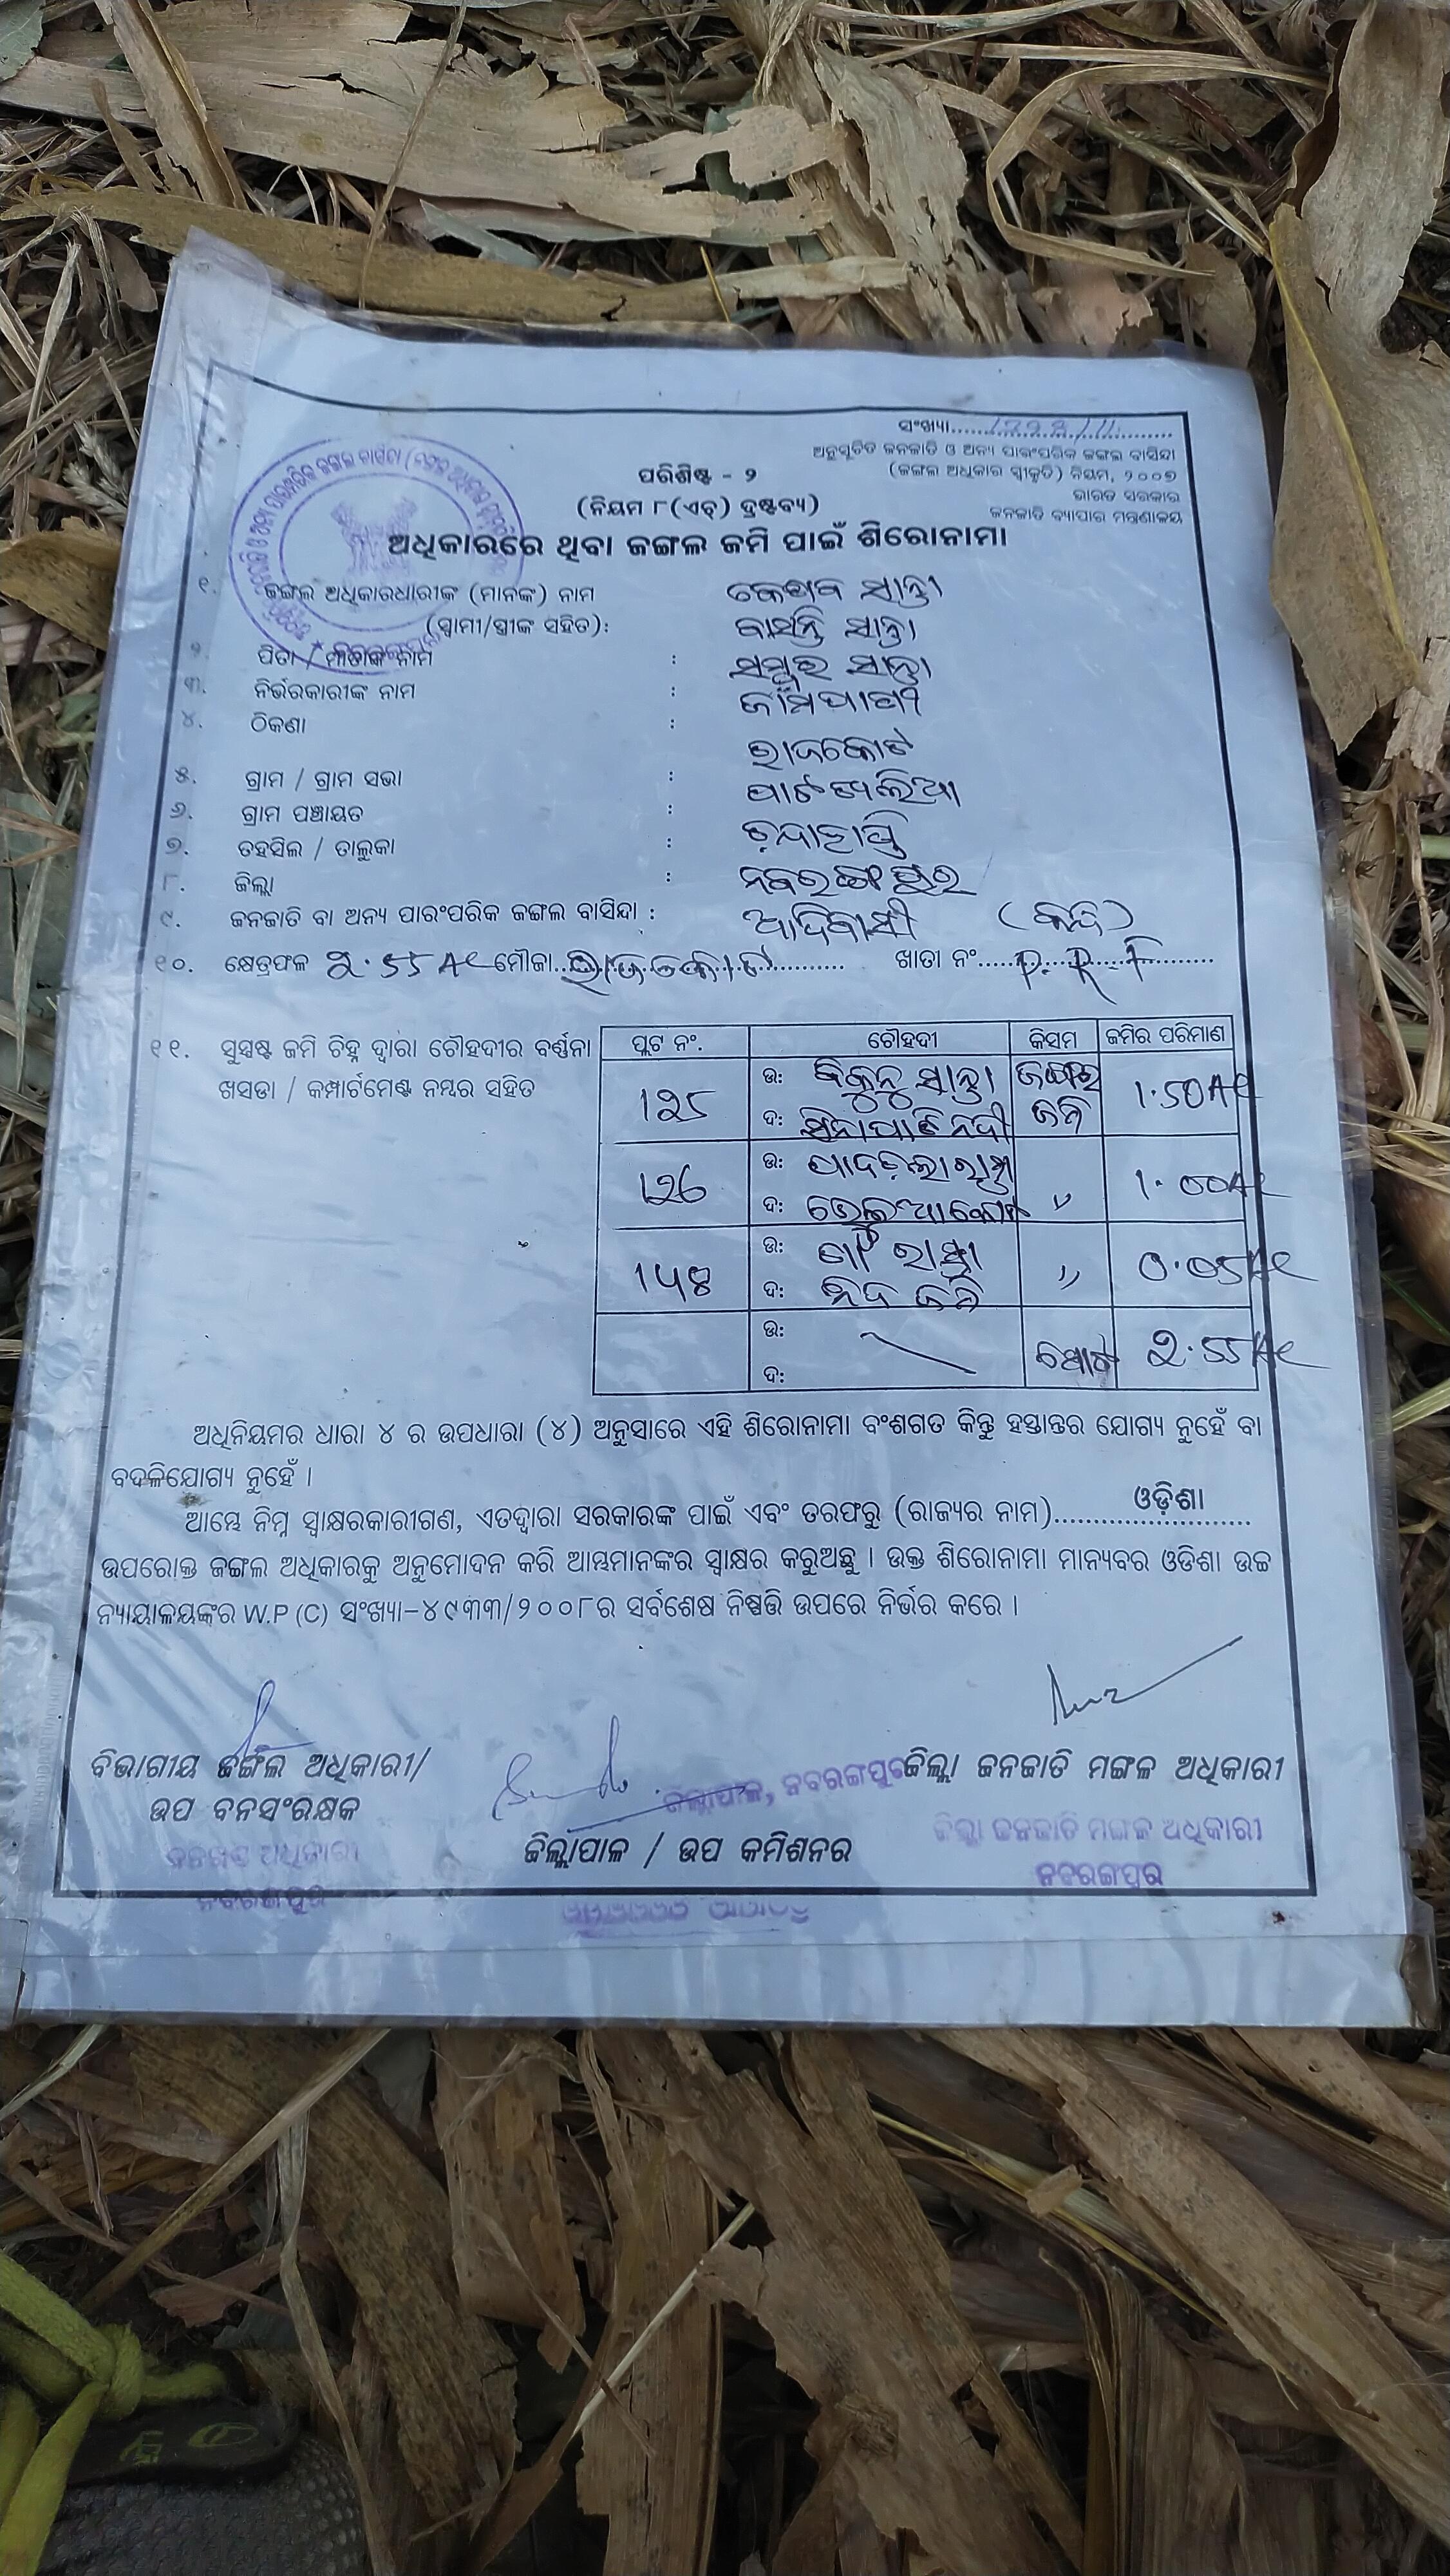 ସଂଖ୍ୟା
ଅନୁସୂଚିତ ଜନଜାତି ଓ ଅନ୍ୟ ପାରଂପରିକ ଜଙ୍ଗଲ ବାସିନ୍ଦା
(ଜଙ୍ଗଲ ଅଧିକାର ସ୍ୱୀକୃତି) ନିୟମ, ୨୦୦୭
ଭାରତ ସରକାର
ଜନଜାତି ବ୍ୟାପାର ମନ୍ତ୍ରଣାଳୟ
ପରିଶିଷ୍ଟ - ୨
(ନିୟମ ୮(ଏଚ୍) ଦ୍ରଷ୍ଟବ୍ୟ)
ଅଧିକାରରେ ଥିବା ଜଙ୍ଗଲ ଜମି ପାଇଁ ଶିରୋନାମା
୧. ଜଙ୍ଗଲ ଅଧିକାରଧାରୀଙ୍କ (ମାନଙ୍କ) ନାମ କେଶବ ସାନ୍ତା
(ସ୍ୱାମୀ/ସ୍ତ୍ରୀଙ୍କ ସହିତ): ବାସନ୍ତି ସାନ୍ତା
୨. ପିତା / ମାତାଙ୍କ ନାମ : ସାନ୍ତା
୩. ନିର୍ଭରକାରୀଙ୍କ ନାମ :
୪. ଠିକଣା :
୫. ଗ୍ରାମ / ଗ୍ରାମ ସଭା : ରାଜକୋଟ
୬. ଗ୍ରାମ ପଞ୍ଚାୟତ :
୭. ତହସିଲ / ତାଲୁକା : ଚନ୍ଦାହାଣ୍ଡି
୮. ଜିଲ୍ଲା : ନବରଙ୍ଗପୁର
୯. ଜନଜାତି ବା ଅନ୍ୟ ପାରଂପରିକ ଜଙ୍ଗଲ ବାସିନ୍ଦା : ଆଦିବାସୀ
୧୦. କ୍ଷେତ୍ରଫଳ 2.55 Ac ମୌଜା ରାଜକୋଟ ଖାତା ନଂ P.R.F
୧୧. ସୁସ୍ପଷ୍ଟ ଜମି ଚିହ୍ନ ଦ୍ୱାରା ଚୌହଦୀର ବର୍ଣ୍ଣନା
ଖସଡା / କମ୍ପାର୍ଟମେଣ୍ଟ ନମ୍ବର ସହିତ
ପ୍ଲଟ ନଂ. ଚୌହଦୀ କିସମ ଜମିର ପରିମାଣ
125 ଉ: ସାନ୍ତା ଜଙ୍ଗଲ ଜମି 1.50 Ac
ଦ: ନଦୀ
126 ଉ: 〃 1.00 Ac
ଦ:
ଉ: ଗାଁ ରାସ୍ତା 〃 0.05 Ac
ଦ: ଜମି
ଉ: ମୋଟ 2.55 Ac
ଦ:
ଅଧିନିୟମର ଧାରା ୪ ର ଉପଧାରା (୪) ଅନୁସାରେ ଏହି ଶିରୋନାମା ବଂଶଗତ କିନ୍ତୁ ହସ୍ତାନ୍ତର ଯୋଗ୍ୟ ନୁହେଁ ବା
ବଦଳିଯୋଗ୍ୟ ନୁହେଁ ।
ଆମ୍ଭେ ନିମ୍ନ ସ୍ୱାକ୍ଷରକାରୀଗଣ, ଏତଦ୍ୱାରା ସରକାରଙ୍କ ପାଇଁ ଏବଂ ତରଫରୁ (ରାଜ୍ୟର ନାମ) ଓଡ଼ିଶା
ଉପରୋକ୍ତ ଜଙ୍ଗଲ ଅଧିକାରକୁ ଅନୁମୋଦନ କରି ଆମ୍ଭମାନଙ୍କର ସ୍ୱାକ୍ଷର କରୁଅଛୁ । ଉକ୍ତ ଶିରୋନାମା ମାନ୍ୟବର ଓଡିଶା ଉଚ୍ଚ
ନ୍ୟାୟାଳୟଙ୍କର W.P (C) ସଂଖ୍ୟା-୪୯୩୩/୨୦୦୮ର ସର୍ବଶେଷ ନିଷ୍ପତ୍ତି ଉପରେ ନିର୍ଭର କରେ ।
ବିଭାଗୀୟ ଜଙ୍ଗଲ ଅଧିକାରୀ/
ଉପ ବନସଂରକ୍ଷକ
ଜିଲ୍ଲାପାଳ, ନବରଙ୍ଗପୁର
ଜିଲ୍ଲାପାଳ / ଉପ କମିଶନର
ଜିଲ୍ଲା ଜନଜାତି ମଙ୍ଗଳ ଅଧିକାରୀ
ଜିଲ୍ଲା ଜନଜାତି ମଙ୍ଗଳ ଅଧିକାରୀ
ନବରଙ୍ଗପୁର